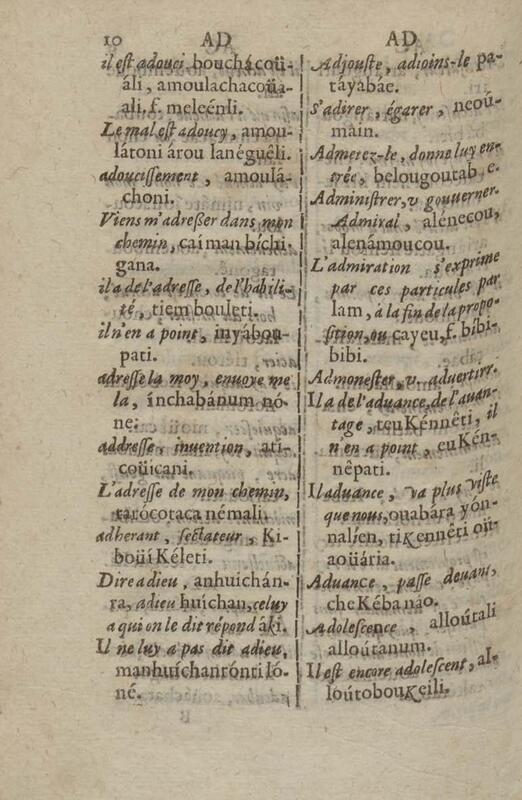 10 AD AD
il est adouci, bouchácoüa-
áli, amoulachacoüa-
ali, f. meleénli.
Le mal est adoucy, amou-
látoni árou lanéguêli.
adoucissement, amoulá-
choni.
Viens m'adreßer dans mon
chemin, caíman bíchi-
gana.
il a de l'adresse, de l'habili-
té, tiem bouleti.
il n'en a point, inyábou-
pati.
adresse la moy, enuoye me
la, ínchabánum nó-
ne.
addresse, inuention, ati-
coüicani.
L'adresse de mon chemin,
tarócotaca némali.
adherant, sectateur, Ki-
boüí Kéleti.
Dire adieu, anhuichán-
ra, adieu huíchan, celuy
a qui on le dit répond áki.
Il ne luy a pas dit adieu,
manhuíchanrónti ló-
né.
Adjouste, adioins-le pa-
táyabáe.
S'adirer, égarer, neoú-
máin.
Admerez-le, donne luy en-
trée, belougoutab e.
Administrer, v gouuerner.
Admiral, alénecou,
alenámoucou.
L'admiration s'exprime
par ces particules par
lam, á la fin de la propo-
sition, ou cayeu, f. bíbi-
bibi.
Admonester, v. aduertirr.
Il a de l'aduance, de l'auan-
tage, teuKénnêti, il
n'en a point, euKén-
nêpati.
Il aduance, va plus viste
que nous, ouabára yón-
nalíen, tiKennêti oüa-
aoüária.
Aduance, passe deuant,
che Kéba náo.
Adolescence, alloútali
alloútanum.
Il est encore adolescent, al-
loútobouKeili.